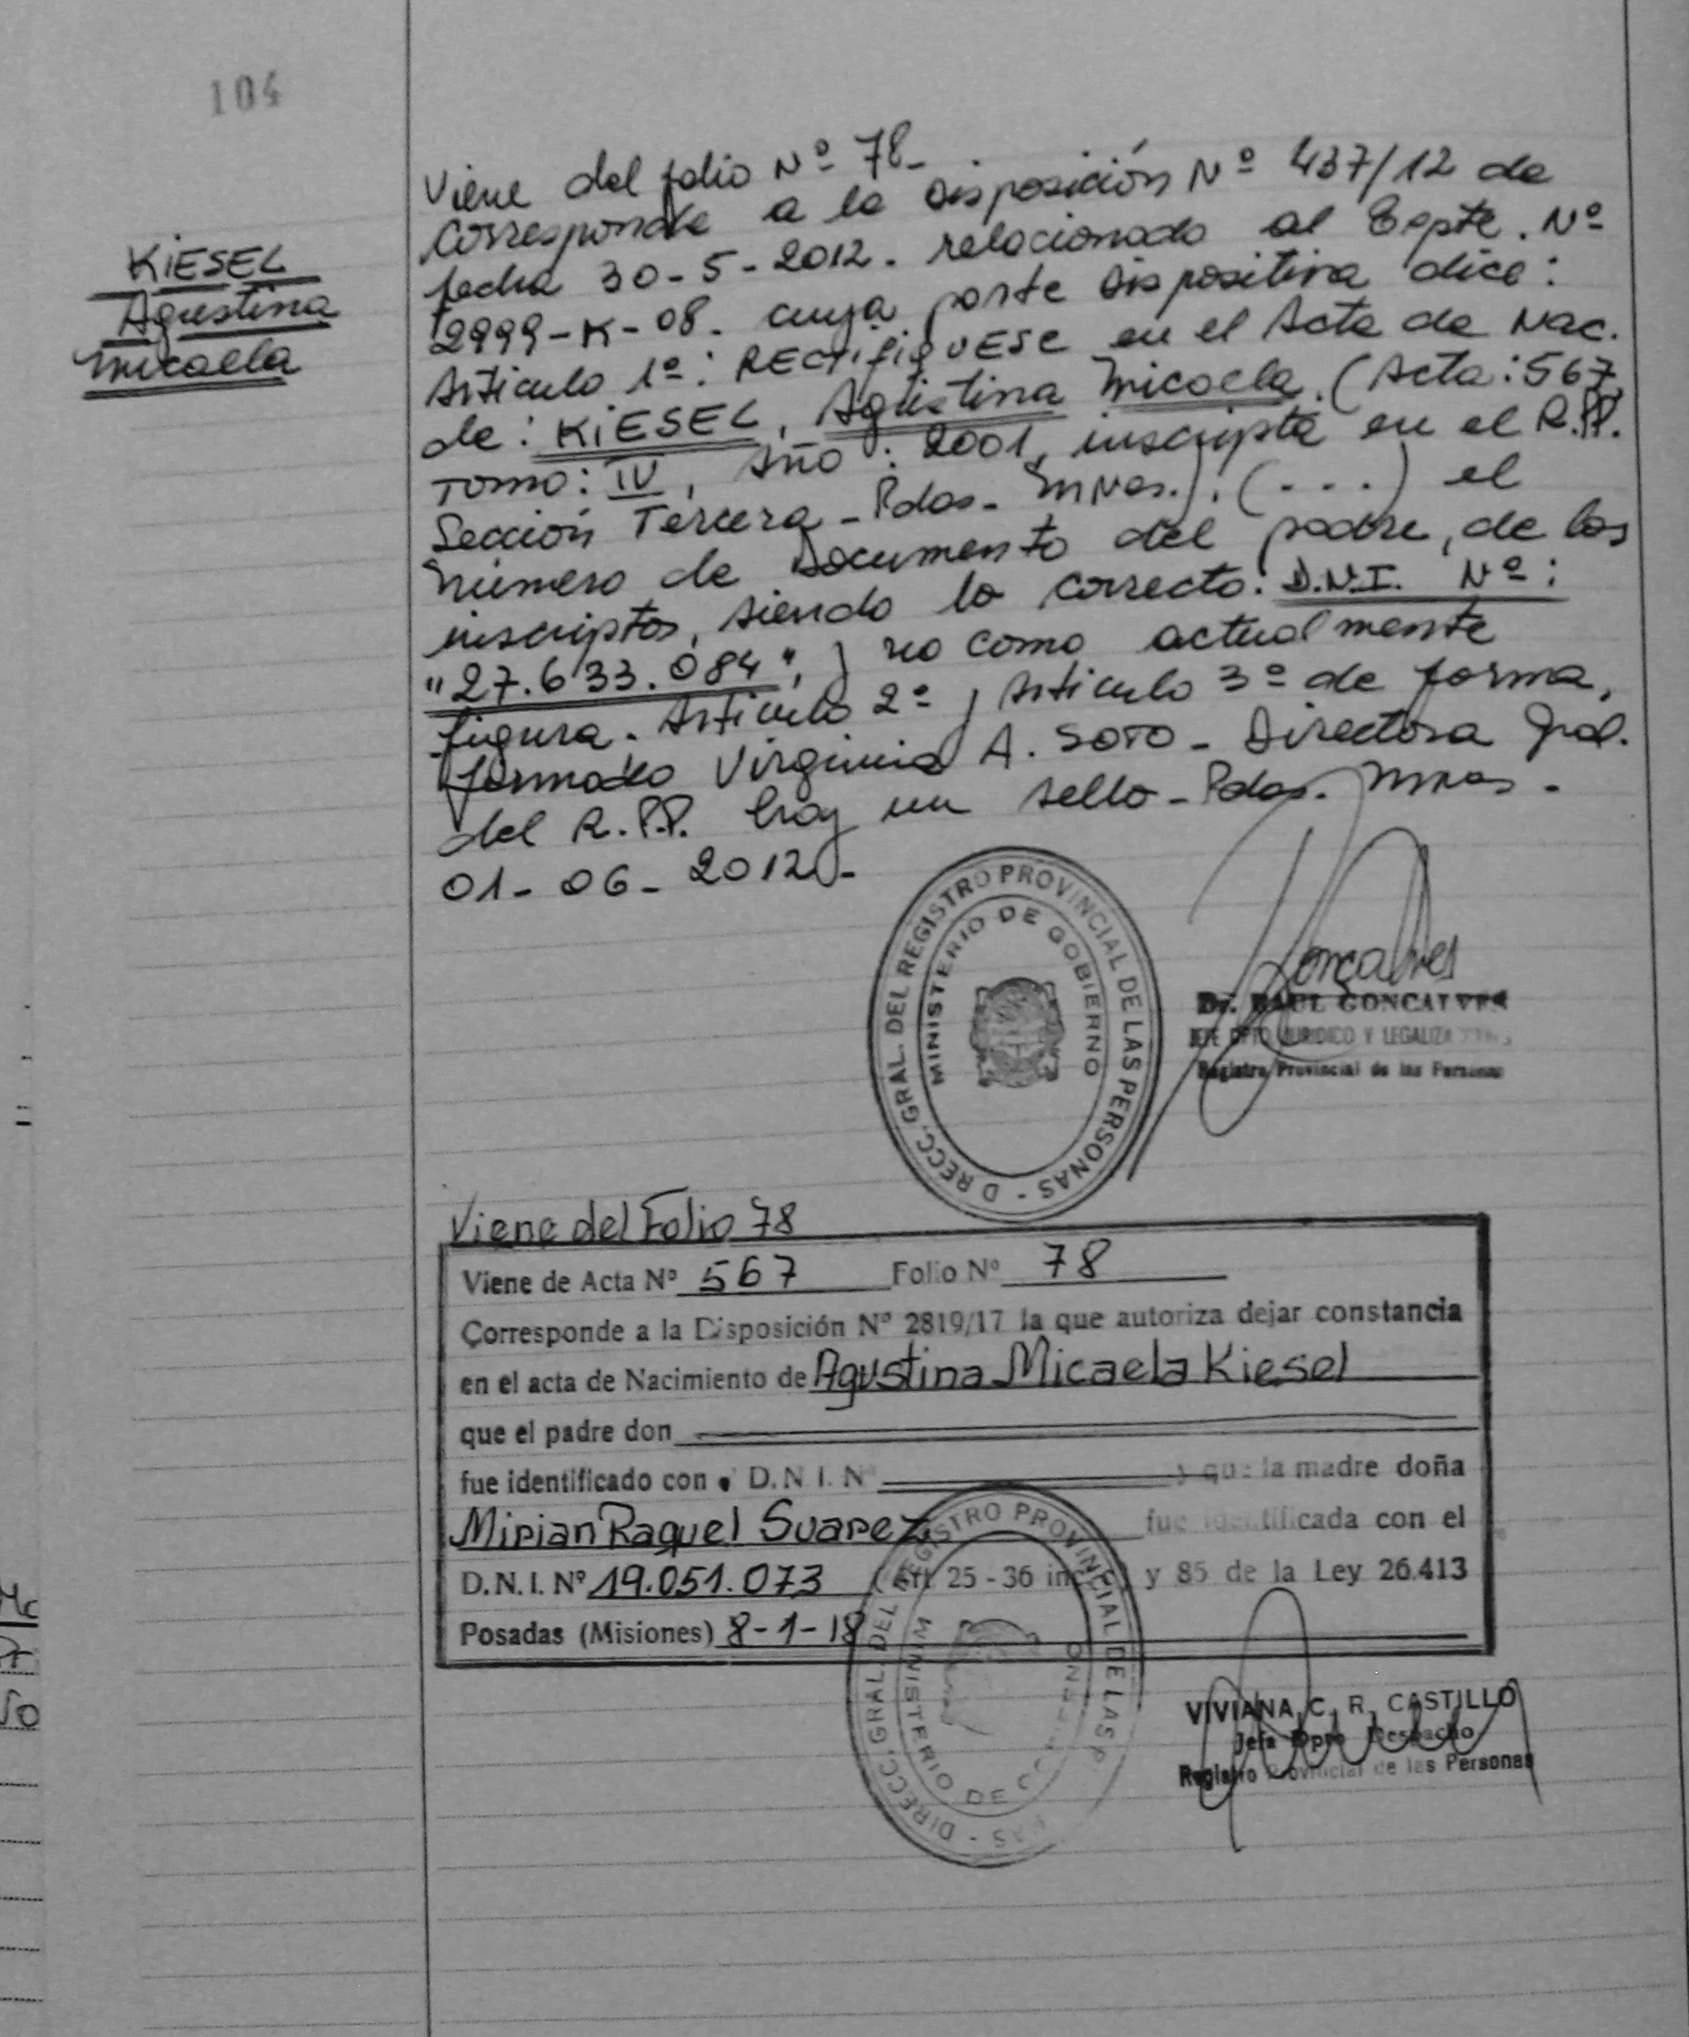 104
KiESEL
Agustina
Micaela
Viene del folio Nº 78-.
Corresponde a la Disposición Nº 437/12 de
fecha 30-5-2012. relacionado al Expte. Nº
2999-K-08. cuya parte dispositiva dice:
Artículo 1º: RECTIFIQUESE en el Acta de Nac.
de: KiESEL, Agustina Micaela. (Acta: 567,
Tomo: IV, Año: 2001, inscripta en el R.P.P.
Sección Tercera - Pdas - Mnes.). (...) el
número de Documento del padre, de los
inscriptos, siendo lo correcto: D.N.I. Nº:
"27.633.084", y no como actualmente
figura. Artículo 2º y Artículo 3º de forma,
firmado Virginia A. SOTO - Directora Gral.
del R.P.P. hay un sello - Pdas. Mnes.
01-06-2012-
DIRECC. GRAL. DEL REGISTRO PROVINCIAL DE LAS PERSONAS -
MINISTERIO DE GOBIERNO
Goncalves
Dr. RAUL GONCALVES
JEFE DPTO JURIDICO Y LEGALIZA
Registro Provincial de las Personas
Viene del Folio 78
Viene de Acta Nº 567 Folio Nº 78
Corresponde a la Disposición Nº 2819/17 la que autoriza dejar constancia
en el acta de Nacimiento de Agustina Micaela Kiesel
que el padre don
fue identificado con D.N.I. Nº y que la madre doña
Mirian Raquel Suarez fue identificada con el
D.N.I. Nº 19.051.073 (Art 25 - 36 inc. y 85 de la Ley 26.413
Posadas (Misiones) 8-1-18
DIRECC. GRAL. DEL REGISTRO PROVINCIAL DE LAS P
MINISTERIO DE
VIVIANA C. R. CASTILLO
Jefa Dpto Despacho
Registro Provincial de las Personas